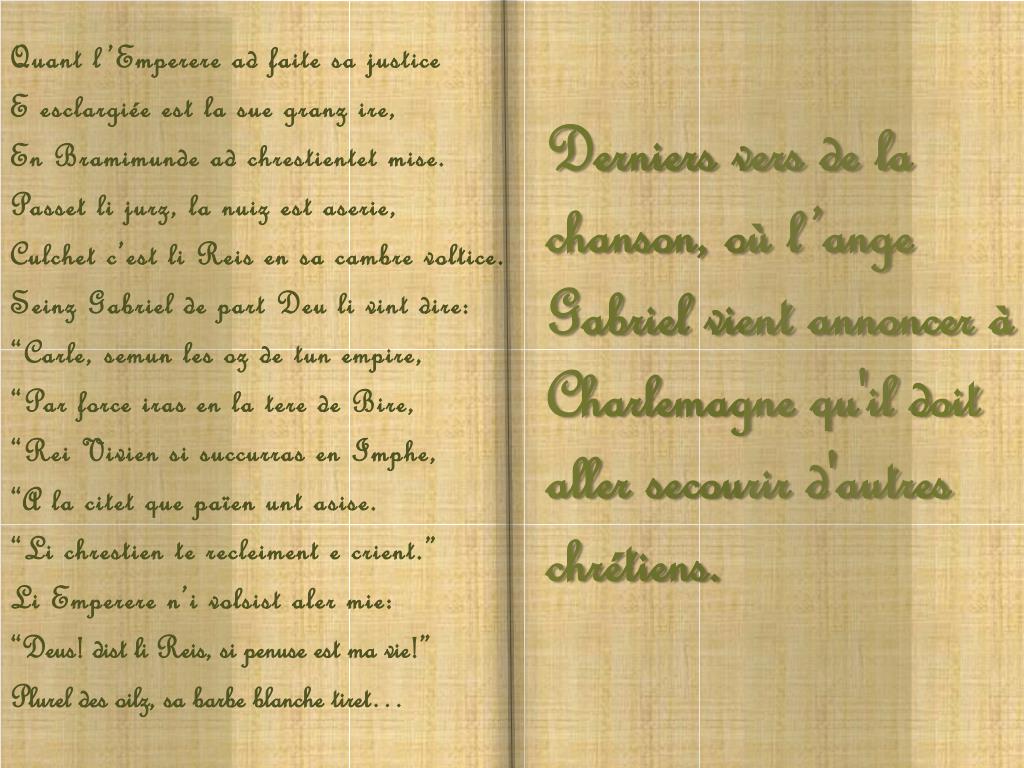 Quant l’Emperere ad faite sa justice
E esclargiée est la sue granz ire,
En Bramimunde ad chrestientet mise.
Passet li jurz, la nuiz est aserie,
Culchet c’est li Reis en sa cambre voltice.
Seinz Gabriel de part Deu li vint dire:
“Carle, semun les oz de tun empire,
“Par force iras en la tere de Bire,
“Rei Vivien si succurras en Imphe,
“A la citet que païen unt asise.
“Li chrestien te recleiment e crient.”
Li Emperere n’i volsist aler mie:
“Deus! dist li Reis, si penuse est ma vie!”
Plurel des oilz, sa barbe blanche tiret…
Derniers vers de la
chanson, où l’ange
Gabriel vient annoncer à
Charlemagne qu'il doit
aller secourir d'autres
chrétiens.